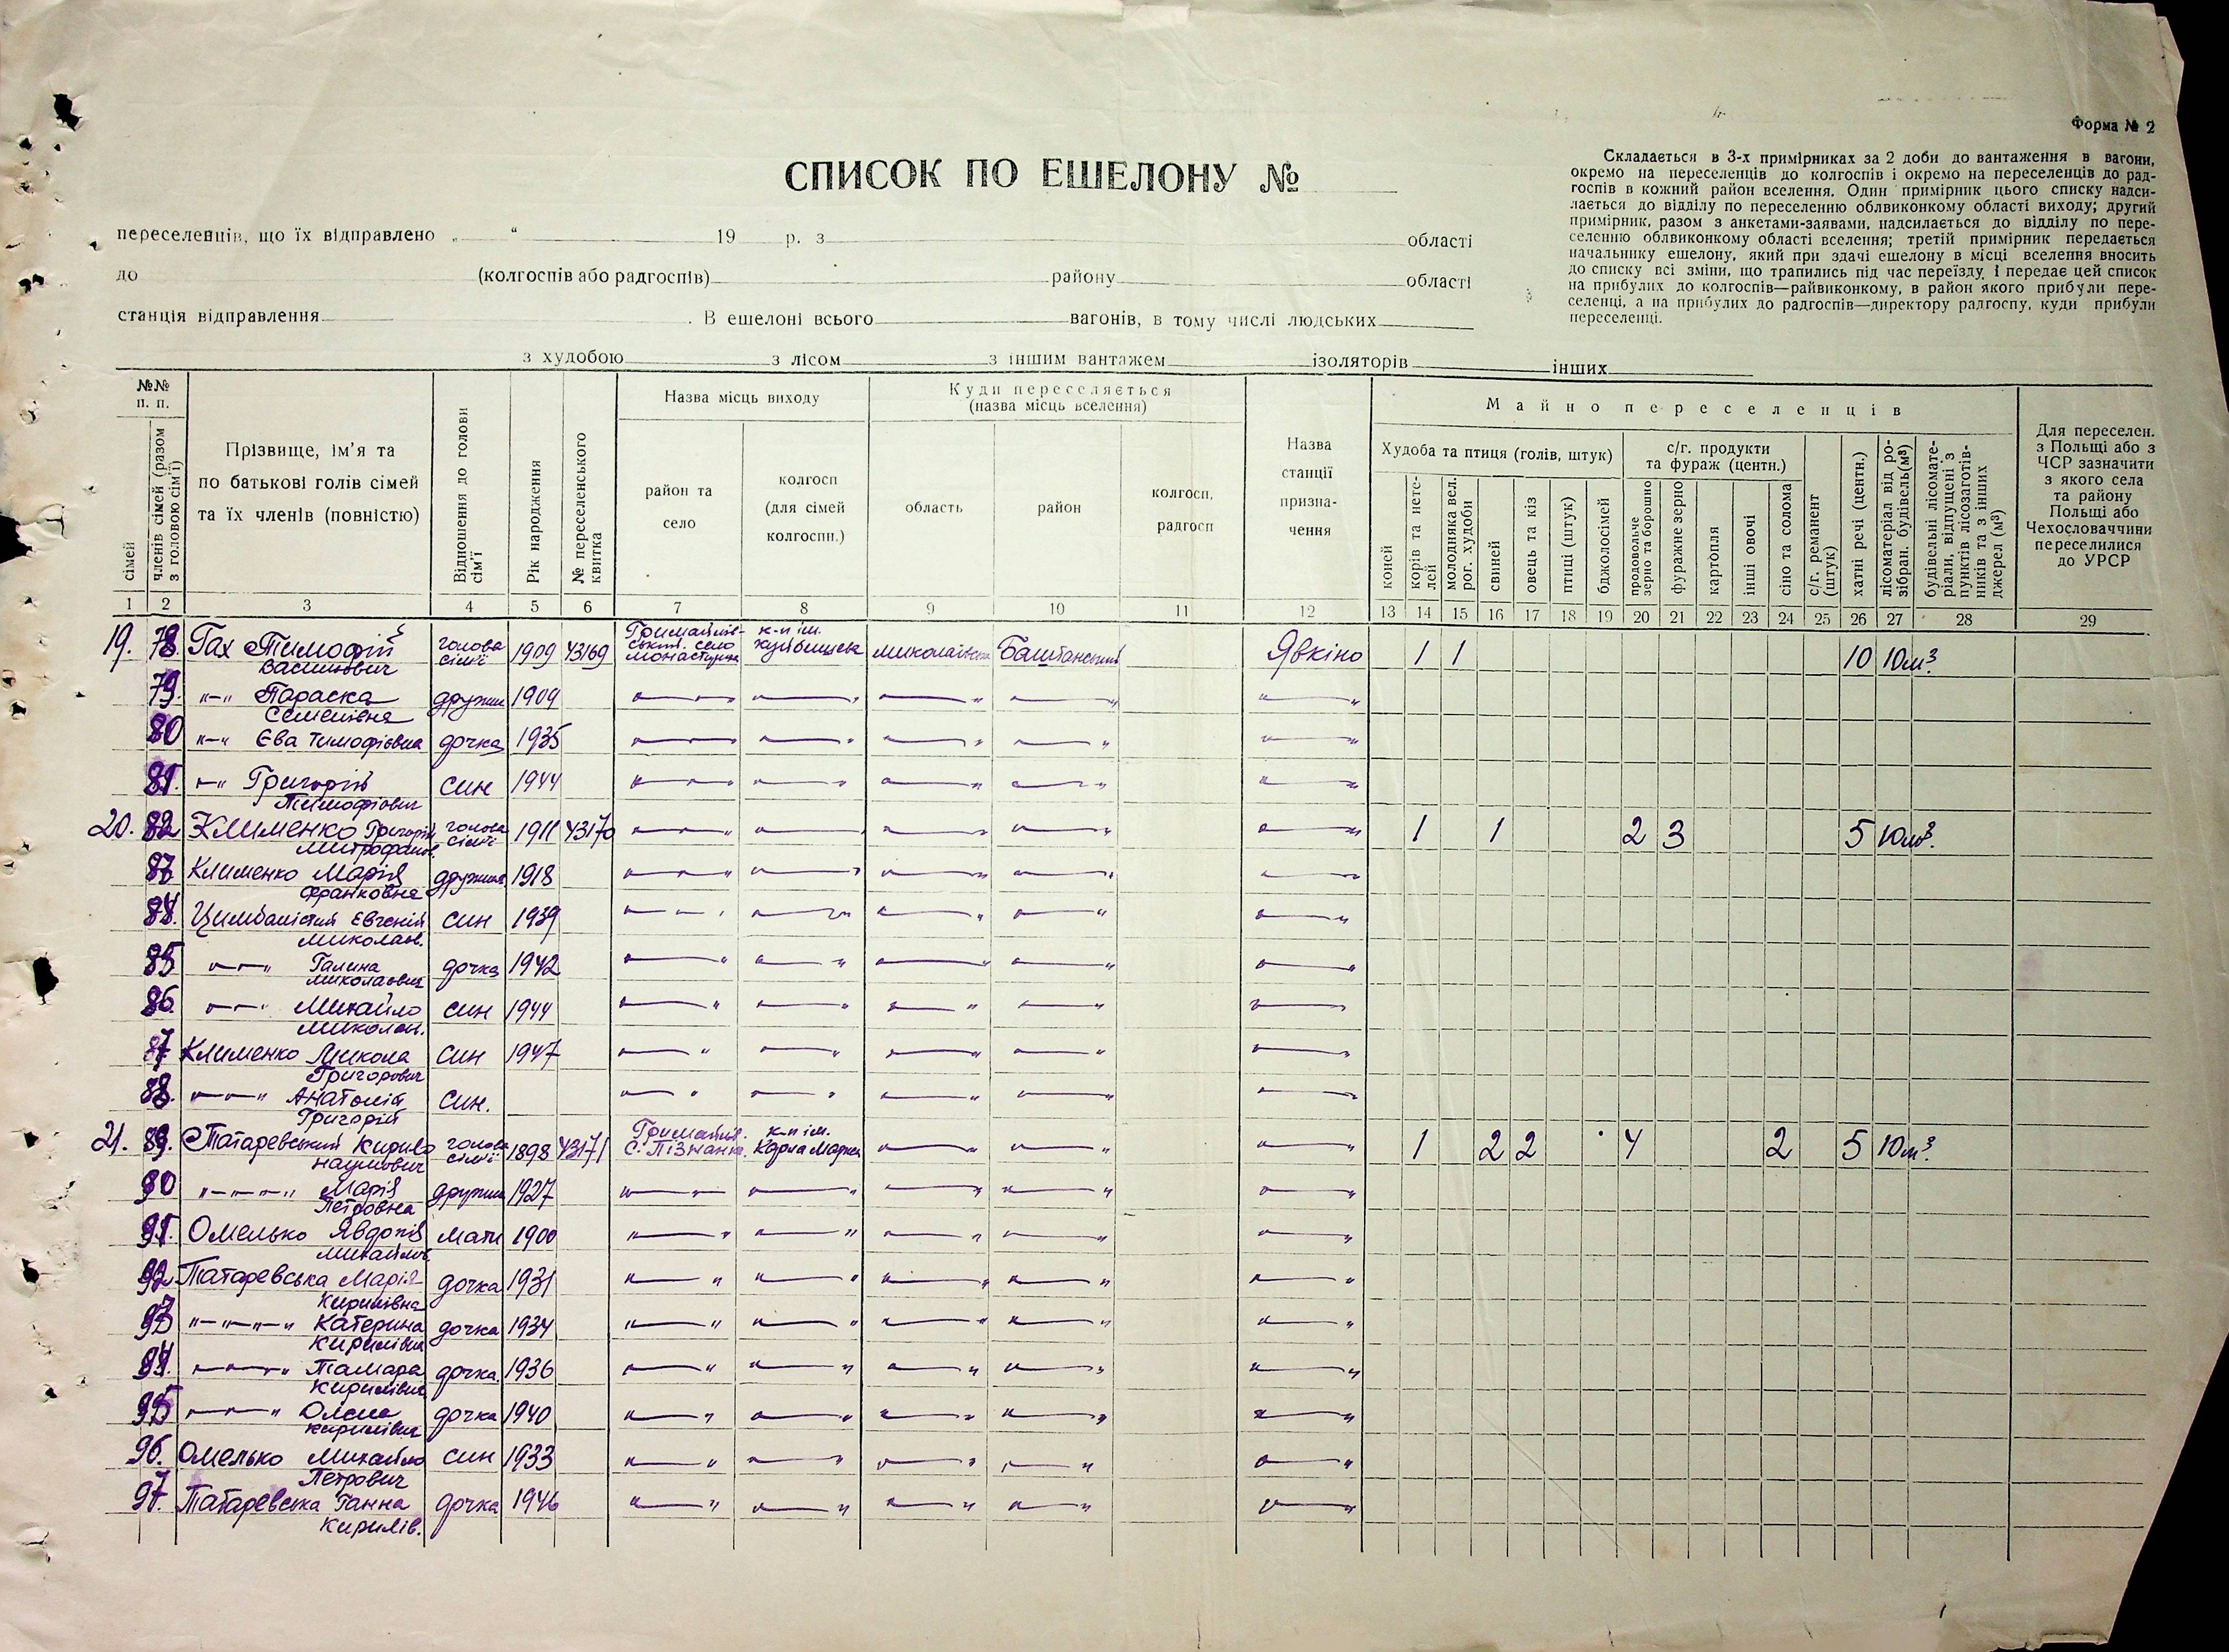 Форма № 2
СПИСОК ПО ЕШЕЛОНУ №
Складається в 3-х примірниках за 2 доби до вантаження в вагони,
окремо на переселенців до колгоспів і окремо на переселенців до рад-
госпів в кожний район вселення. Один примірник цього списку надси-
лається до відділу по переселенню облвиконкому області виходу; другий
примірник, разом з анкетами-заявами, надсилається до відділу по пере-
селенню облвиконкому області вселення; третій примірник передається
начальнику ешелону, який при здачі ешелону в місці вселення вносить
до списку всі зміни, що трапились під час переїзду, і передає цей список
на прибулих до колгоспів—райвиконкому, в район якого прибули пере-
селенці, а на прибулих до радгоспів—директору радгоспу, куди прибули
переселенці.
переселенців, що їх відправлено „ “ 19 р. з області
до (колгоспів або радгоспів) району області
станція відправлення . В ешелоні всього вагонів, в тому числі людських
з худобою з лісом з іншим вантажем ізоляторів інших
№№ п. п.
сімей
членів сімей (разом з головою сім'ї)
Прізвище, ім'я та
по батькові голів сімей
та їх членів (повністю)
Відношення до голови сім'ї
Рік народження
№ переселенського квитка
Назва місць виходу
район та село
колгосп
(для сімей
колгоспн.)
Куди переселяється
(назва місць вселення)
область
район
колгосп, радгосп
Назва
станції
призна-
чення
Майно переселенців
Худоба та птиця (голів, штук)
коней
корів та нете-
лей
молодняка вел.
рог. худоби
свиней
овець та кіз
птиці (штук)
бджолосімей
с/г. продукти
та фураж (центн.)
продовольче
зерно та борошно
фуражне зерно
картопля
інші овочі
сіно та солома
с/г. реманент
(штук)
хатні речі (центн.)
лісоматеріал від ро-
зібран. будівель(м³)
будівельні лісомате-
ріали, відпущені з
пунктів лісозаготів-
ників та з інших
джерел (м³)
Для переселен.
з Польщі або з
ЧСР зазначити
з якого села
та району
Польщі або
Чехословаччини
переселилися
до УРСР
1 2 3 4 5 6 7 8 9 10 11 12 13 14 15 16 17 18 19 20 21 22 23 24 25 26 27 28 29
19. 78. Гах Тимофій голова сім'ї 1909 43169 село к-п ім. Куйбишева Баштанський Явкіно 1 1 10 10 м³.
79. "—" Параска дружин 1909
Семенівна
80 "—" Єва Тимофієвна дочка 1935
81. "—" Григорій син 1944
Тимофіович
20. 82 Клименко Григорій голова сім'ї 1911 43170 1 1 2 3 5 10 м³.
Митрофанов.
83 Клименко Марія дружина 1918
Франковна
84. Цимбалістий Євгеній син 1939
Миколаев.
85 "—" Галина дочка 1942
86 "—" Михайло син 1944
87 Клименко Микола син 1947
Григорович
88. "—" Анатолій син.
Григорій
21. 89. Татаревський Кирило голова сім'ї 1898 43171 с. Пізнанка к-п ім. Карла Маркса 1 2 2 4 2 5 10 м³.
Наумович
90 "—" Марія дружин 1927
Петровна
91. Омелько Явдокія мати 1900
Михайлов.
92. Татаревська Марія дочка 1931
Кирилівна
93 "—" Катерина дочка 1934
Кирилівна
94. "—" Тамара дочка 1936
Кирилівна
95 "—" Олена дочка 1940
Кирилівна
96. Омелько Михайло син 1933
Петрович
97. Татаревська Ганна дочка 1946
Кирилів.